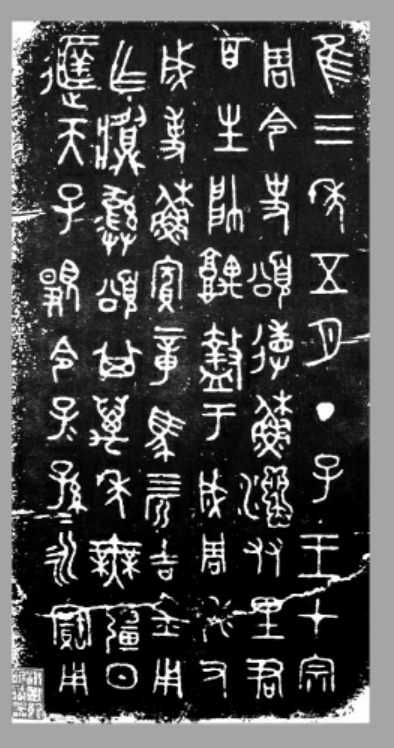 隹三年五月丁子王才宗
周令史頌省蘇友里君
百生帥堣盩于成周休又
成事蘇賓章馬四匹吉金用
乍彝頌其萬年無疆日
天子顯令子孫永寶用